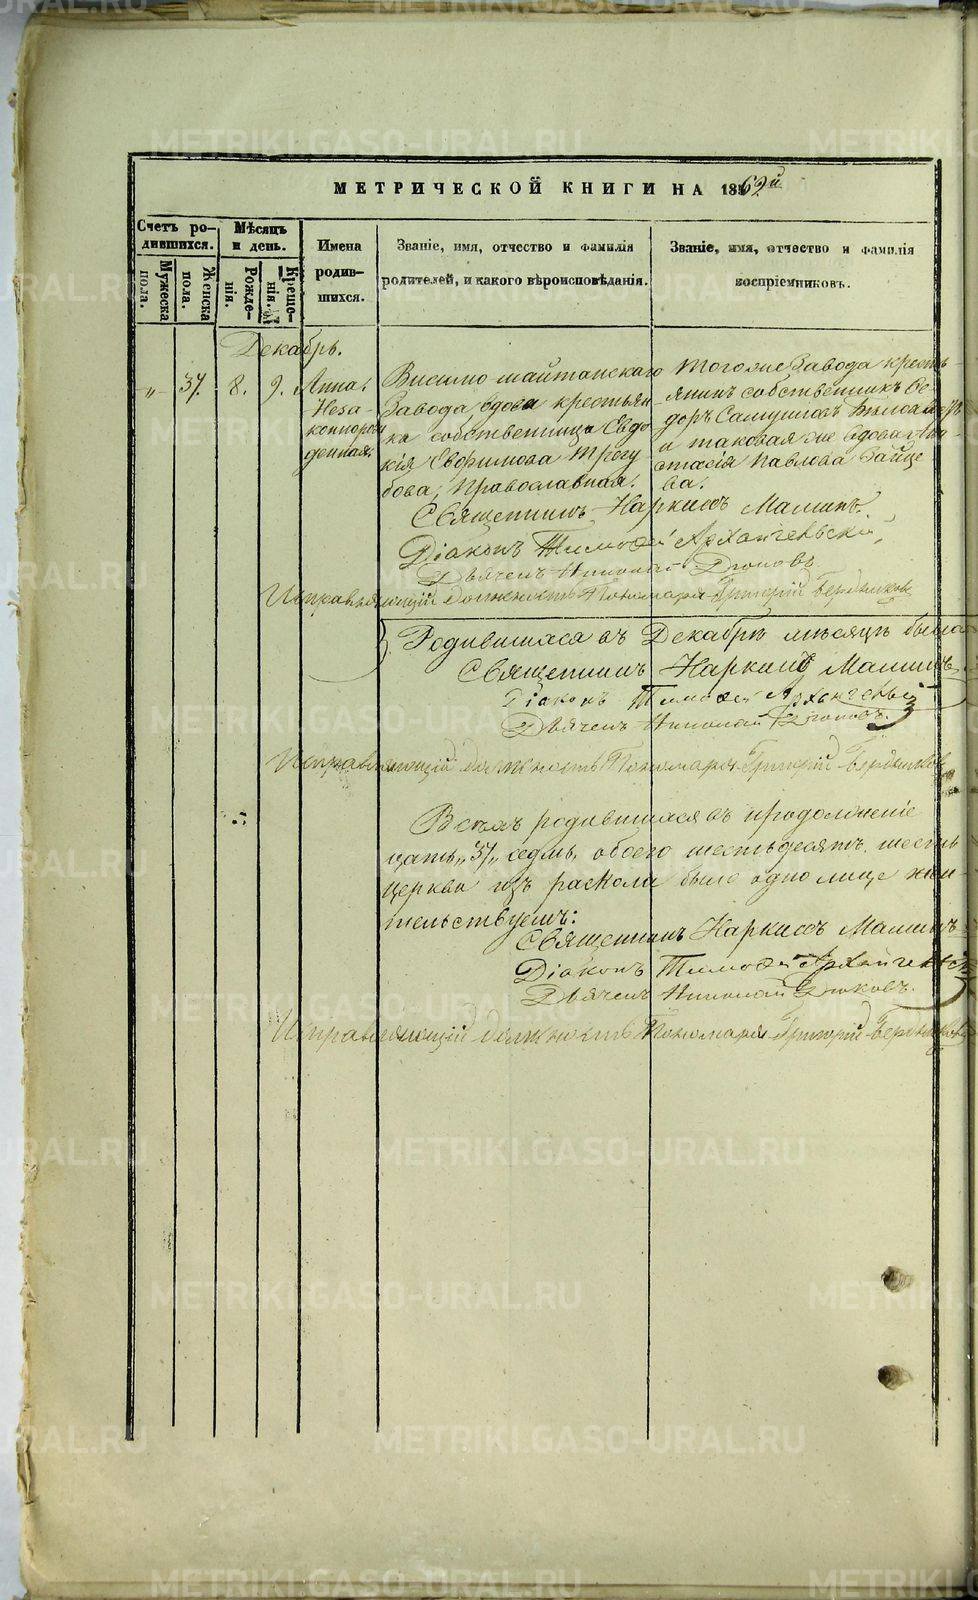 МЕТРИЧЕСКОЙ КНИГИ НА 1869й
Счетъ родившихся.
Мужеска пола.
Женска пола.
Мѣсяцъ и день.
Рожденія.
Крещенія.
Имена родившихся.
Званіе, имя, отчество и фамилія
родителей, и какого вѣроисповѣданія.
Званіе, имя, отчество и фамилія
воспріемниковъ.
Декабрь.
"
37.
8.
9.
Анна,
Неза-
коннорож
денная.
Висимо шайтанскаго
Завода, вдова крестьян
ка собственница Евдо
кія Евфимова Трегу
бова, Православная.
Тогоже Завода кресть-
янинъ собственникъ Ѳе-
доръ Самуиловъ
и таковая же вдова Ана
стасія Павлова Зайце
ва.
Священникъ Наркисъ Маминъ.
Діаконъ Тимофей Архангельскій,
Дьячекъ Николай Дюковъ.
Исправляющій должность Пономаря Григорій Бердников
Родившихся въ Декабрѣ мѣсяцѣ было
Священникъ Наркисъ Маминъ,
Діаконъ Тимофей Архангельскій
Дьячекъ Николай Дюковъ.
Исправляющій должность Пономаря Григорій Бердников
Всѣхъ родившихся въ продолженіе
цать "37" седмь, обоего шестьдесятъ шесть
церкви изъ раскола было одно лице жен
тельствуемъ:
Священникъ Наркисъ Маминъ
Діаконъ Тимофей Архангельскій
Дьячекъ Николай Дюковъ.
Исправляющій должность Пономаря Григорій Бердников
METRIKI.GASO-URAL.RU